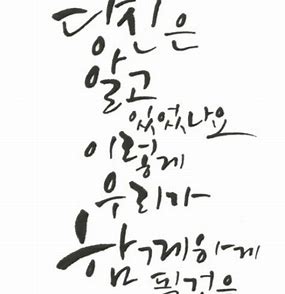 당신은
알고
있었나요
이렇게
우리가
함께하게
될것을